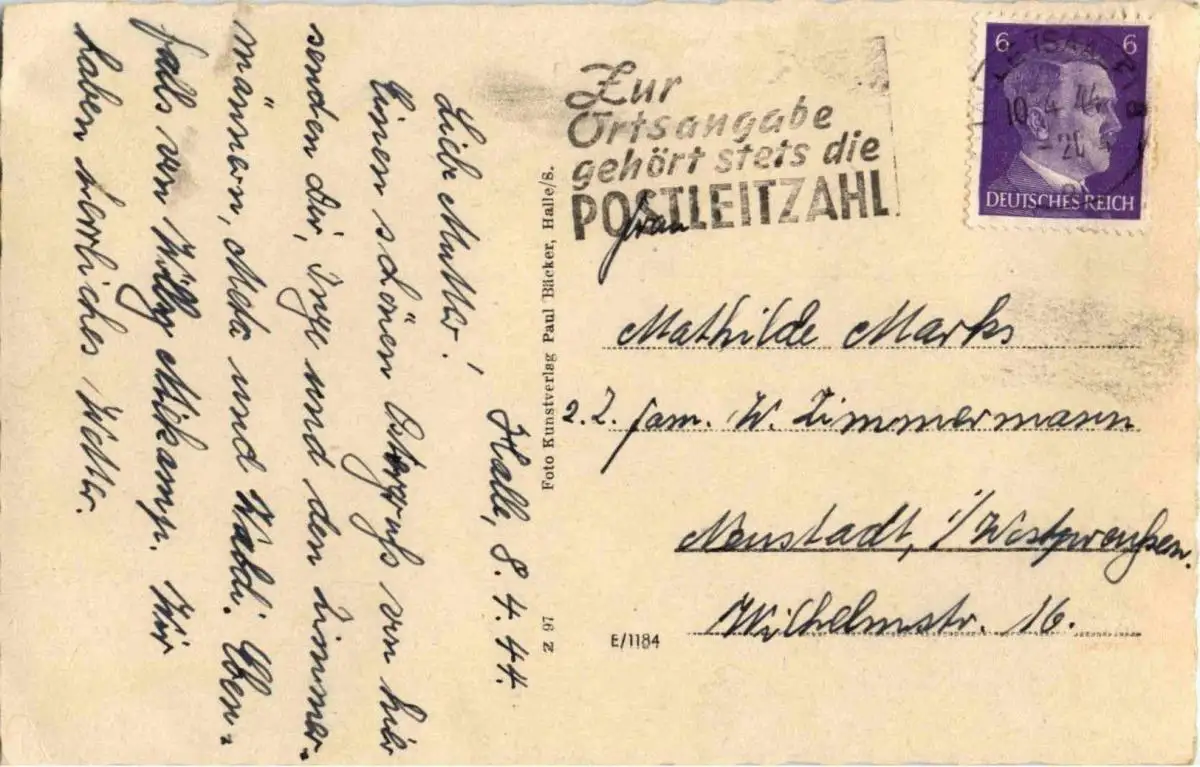 Zur
Ortsangabe
gehört stets die
POSTLEITZAHL
6 6
DEUTSCHES REICH
Halle, 8. 4. 44.
Liebe Mutter!
Einen schönen Ostergruß von hier
senden dir, Inge und den Zimmer-
männern, und Waldi. Eben-
falls von Willy Wir
haben herrliches Wetter.
Foto Kunstverlag Paul Bäcker, Halle/S.
Z 97
E/1184
Frau
Mathilde Marks
z. Z. fam. W. Zimmermann
Neustadt, i/Westpreußen.
Wilhelmstr. 16.